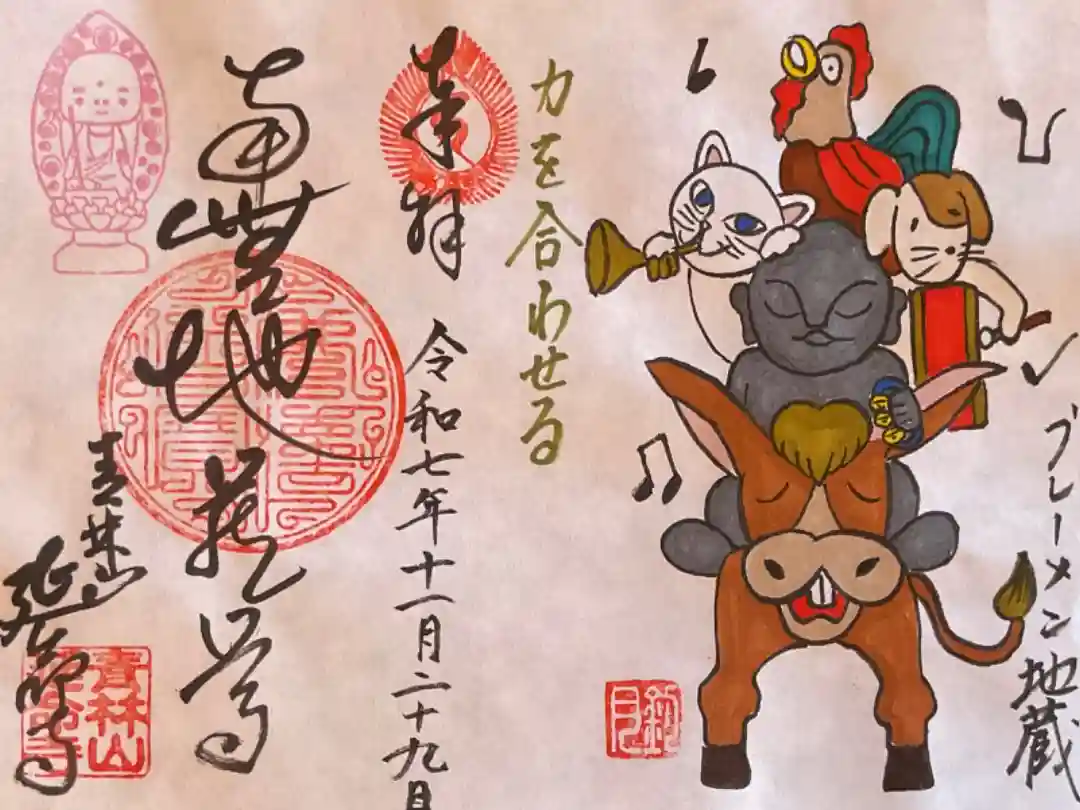 ブレーメン地蔵
力を合わせる
奉拝
令和七年十一月二十九日
南無地蔵尊
青林山
延命寺
青林山
延命寺